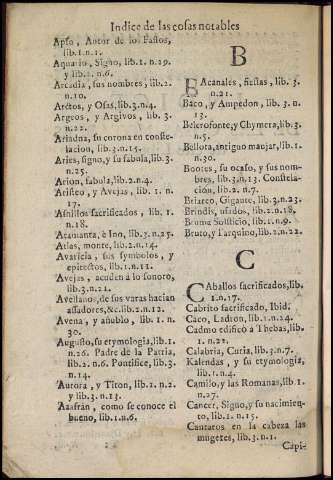 Indice de las cosas notables
Apso, Autor de lo Fastos,
lib.1.n.1.
Aquario, Signo, lib.1. n.29.
y lib.2. n.6.
Arcadia, sus nombres, lib.2.
n.10.
Arctos, y Osas, lib.3.n.4.
Argeos, y Argivos, lib. 3.
n.22.
Ariadna, su corona en conste-
lacion, lib.3.n.15.
Aries, signo, y su fabula, lib.3.
n.25.
Arion, fabula, lib.2.n.4.
Aristeo, y Avejas, lib. 1. n.
17.
Asnillos sacrificados, lib. 1.
n.18.
Atamanta, è Ino, lib.3.n.25.
Atlas, monte, lib.2.n.14.
Avaricia, sus symbolos, y
epitectos, lib.1.n.12.
Avejas, acuden á lo sonoro,
lib.3.n.21.
Avellanos, de sus varas hacian
assadores, &c.lib.2.n.12.
Avena, y añublo, lib. 1. n.
30.
Augusto, su etymologia, lib.1.
n.26. Padre de la Patria,
lib.2. n.6. Pontifice, lib.3.
n.14.
Aurora, y Titon, lib.2. n.2.
y lib.3. n.13.
Azafràn, como se conoce el
bueno, lib.1.n.6.
B
BAcanales, fiestas, lib. 3.
n.21.
Baco, y Ampedon, lib. 3. n.
13.
Belerofonte, y Chymera, lib.3.
n.5.
Bellota, antiguo manjar, lib.1.
n.30.
Bootes, su ocaso, y sus nom-
bres, lib.3,n.13. Constela-
ciòn, lib.2. n.7.
Briareo, Gigante, lib.3.n.23.
Brindis, usados, lib.2.n.18.
Brume Solsticio, lib.1.n.9.
Bruto, y Tarquino, lib.2.n.22.
C
CAballos sacrificados, lib.
1.n.17.
Cabrito sacrificado, Ibid.
Caco, Ladron, lib.1.n.24.
Cadmo edificò a Thebas, lib.
1. n.22.
Calabria, Curia, lib.3.n.7.
Kalendas, y su etymologia,
lib.1.n.4.
Camilo, y las Romanas, lib.1.
n.27.
Cancer, Signo, y su nacimien-
to, lib.1. n.15.
Cantaros en la cabeza las
mugeres, lib.3. n.1.
Capi-